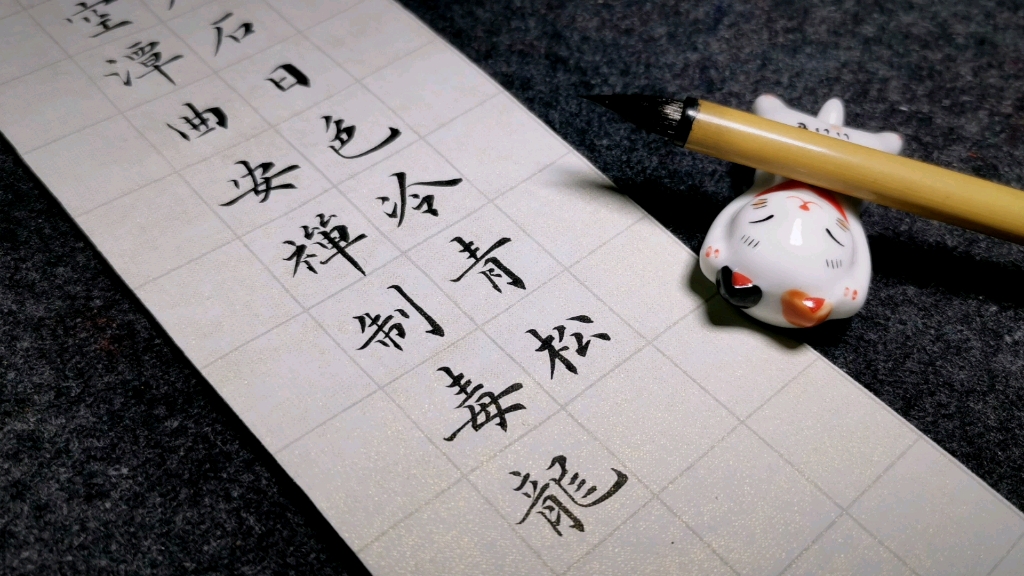 石日色冷青松
空潭曲安禪制毒龍